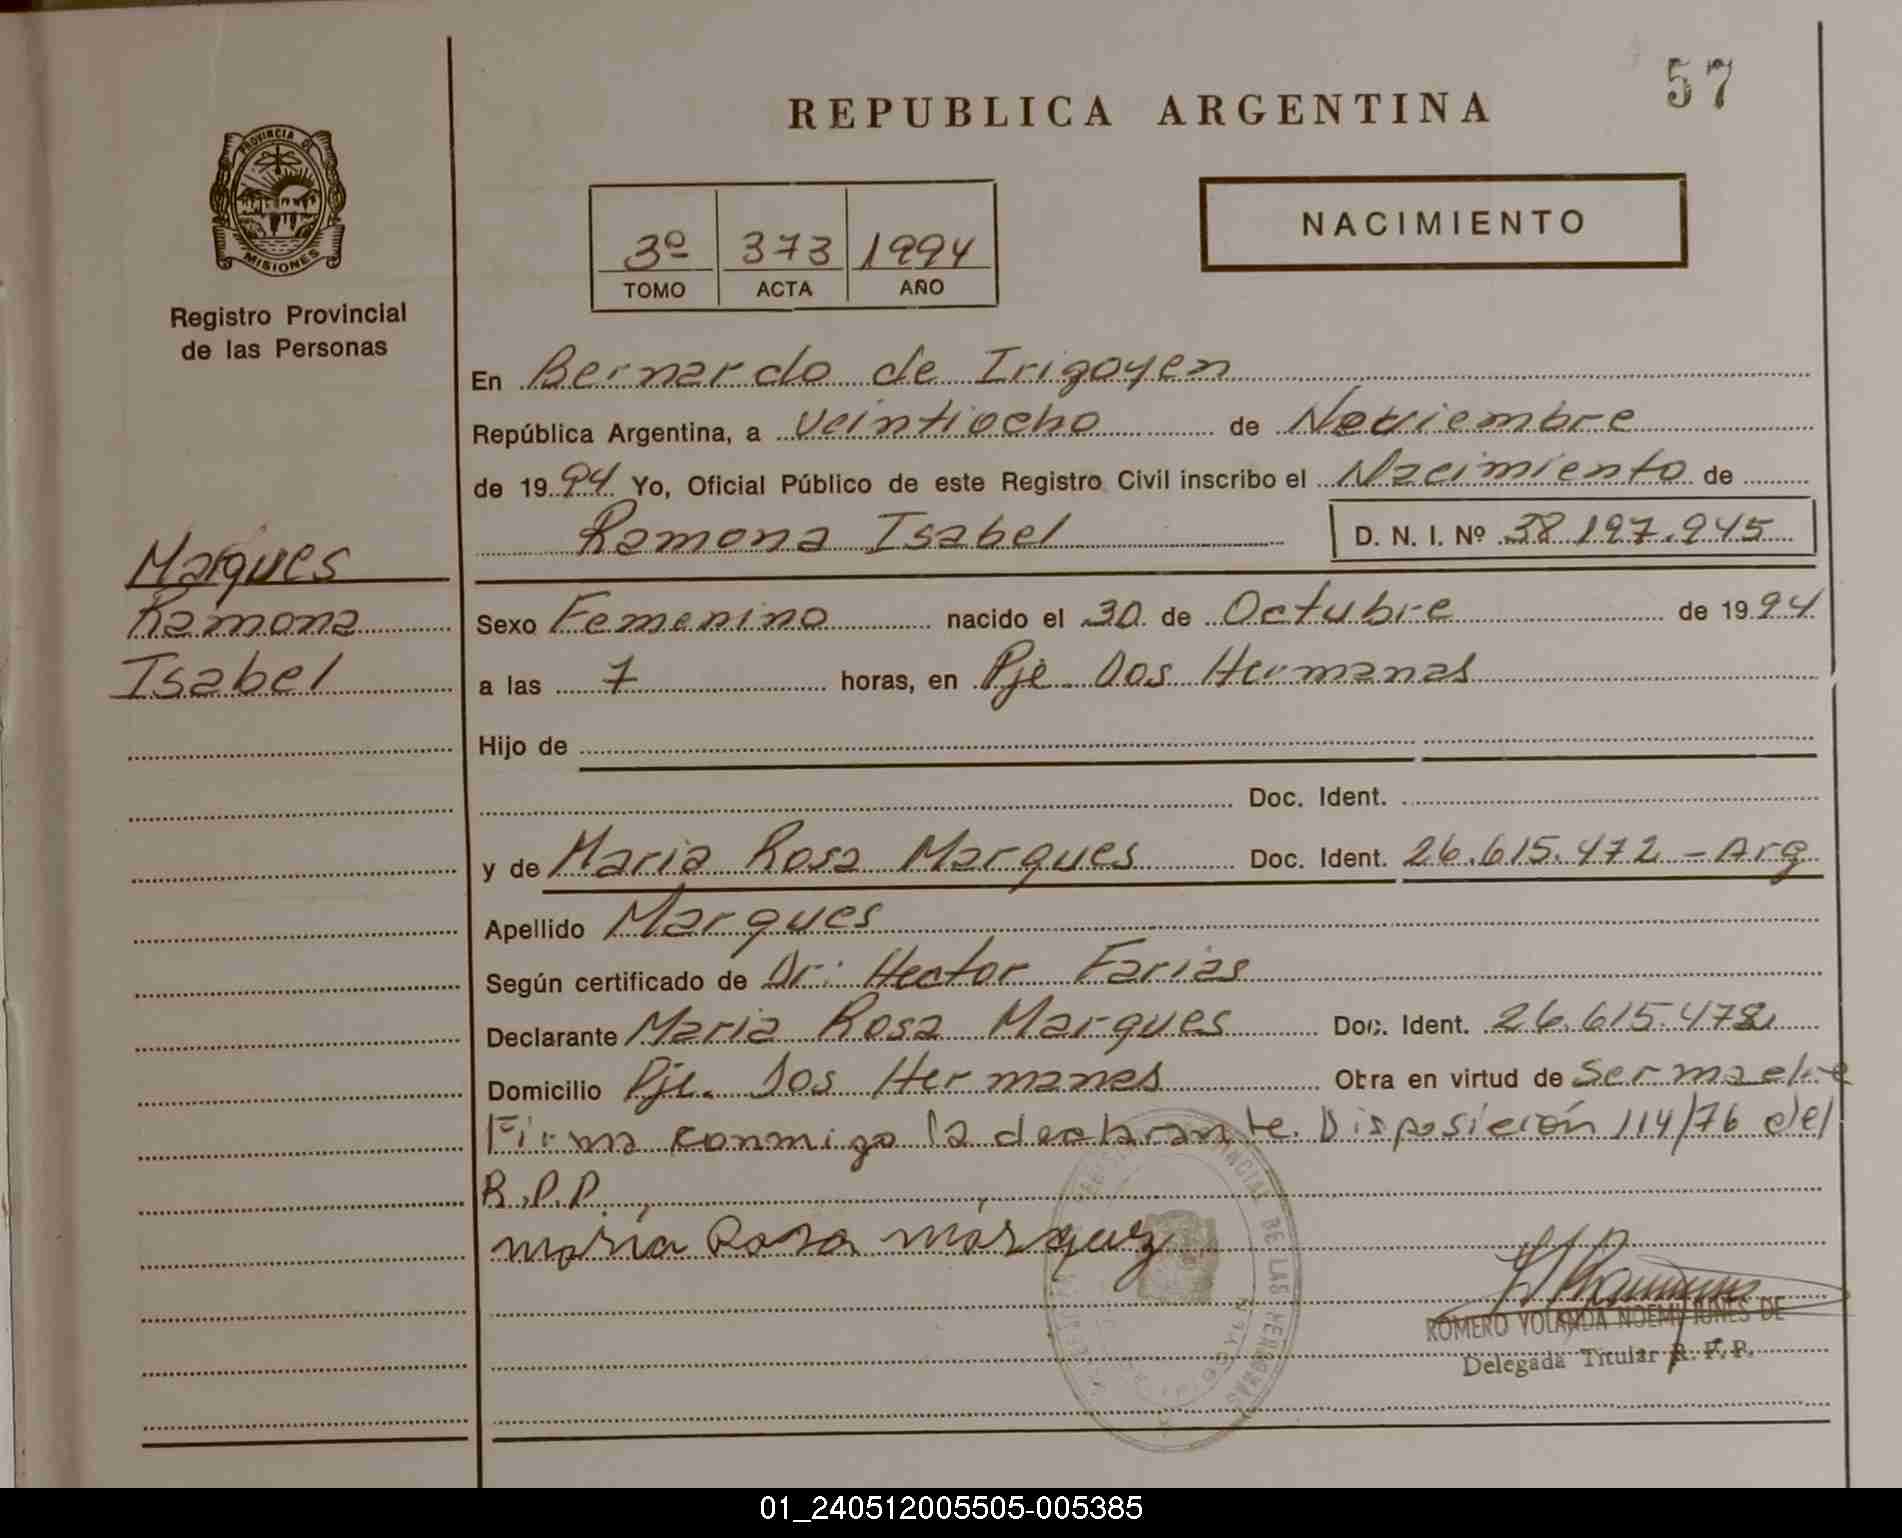 57
REPUBLICA ARGENTINA
PROVINCIA DE
MISIONES
Registro Provincial
de las Personas
NACIMIENTO
3º 373 1994
TOMO ACTA AÑO
En Bernardo de Irigoyen
República Argentina, a veintiocho de Noviembre
de 1994 Yo, Oficial Público de este Registro Civil inscribo el Nacimiento de
Ramona Isabel D. N. I. Nº 38.197.945
Marques
Ramona
Isabel
Sexo Femenino nacido el 30 de Octubre de 1994
a las 7 horas, en Pje Dos Hermanas
Hijo de
Doc. Ident.
y de Maria Rosa Marques Doc. Ident. 26.615.472 - Arg
Apellido Marques
Según certificado de Dr: Hector Farias
Declarante Maria Rosa Marques Doc. Ident. 26.615.472
Domicilio Pje. Dos Hermanas Obra en virtud de Ser madre
Firma conmigo la declarante. Disposición 114/76 del
R.P.P.
maría Rosa márquez
DE LAS PERSONAS
ROMERO YOLANDA NOEMI DE
Delegada Titular R. P. P.
01_240512005505-005385